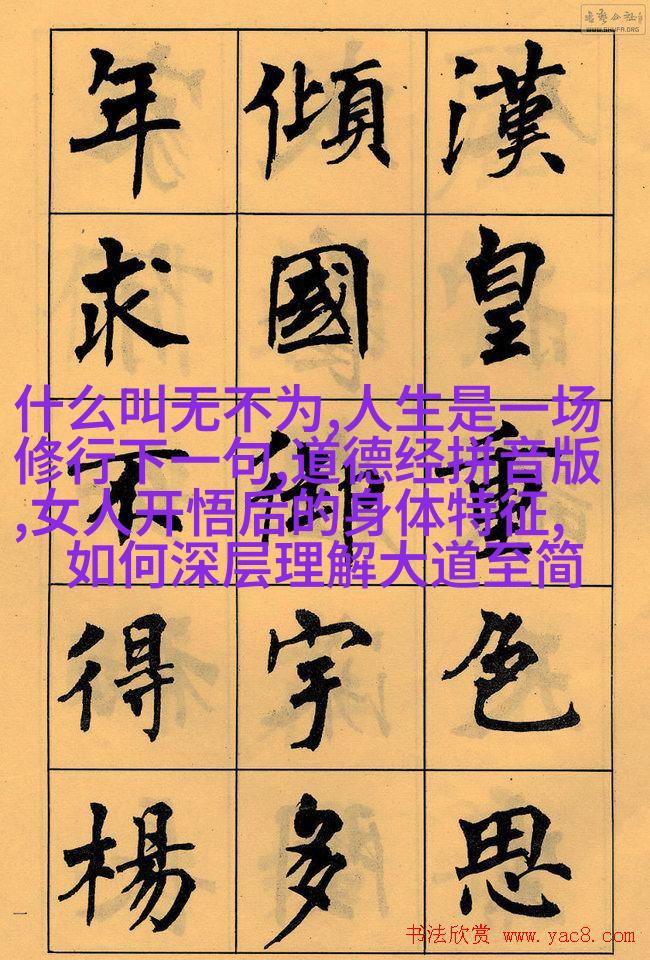 漢皇重色思
傾國御宇多
年求不得楊
什么叫无不为,人生是一场
修行下一句,道德经拼音版
,女人开悟后的身体特征,
如何深层理解大道至简
WWW.SHUFA.ORG
一
书法欣赏 www.yac8.com